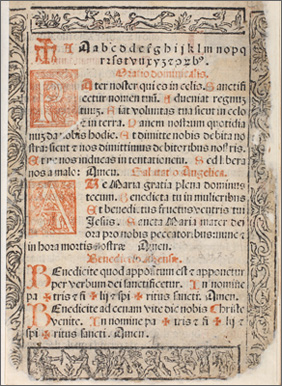 A a b c d e f g h i j k l m n o p q
r s t v u x y z
Oratio dominicalis.
Pater noster qui es in celis. Sanctifi
cetur nomen tuũ. Adueniat regnuz
tuuz. Fiat voluntas tua sicut in celo
et in terra. Panem nostrum quotidia
nuz da nobis hodie. Et dimitte nobis debita no
stra: sicut et nos dimittimus debitoribus nostris.
Et ne nos inducas in tentationem. Sed libera
nos a malo: Amen. Salutatio Angelica.
Ave Maria gratia plena dominus
tecum. Benedicta tu in mulieribus
Et benedictus fructus ventris tui
Jesus. Sancta Maria mater dei
ora pro nobis peccatoribus: nunc et
in hora mortis nostræ Amen.
Benedictio
Benedicite quod appositum est et apponetur
per verbum dei sanctificetur. In nomine
pa ✠ tris et fi ✠ lij et spi ✠ ritus sancti. Amen.
Benedicite ad cenam vite dic nobis Christe
venite. In nomine pa ✠ tris et fi ✠ lij et
spi ✠ ritus sancti. Amen.